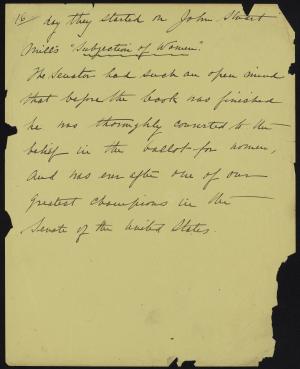 16/ day they started on John Stuart
Mill's "Subjection of Women".
The Senator had such an open mind
that before the book was finished
he was thoroughly converted to the
belief in the ballot for women,
and was ever after one of our
greatest champions in the
Senate of the United States.